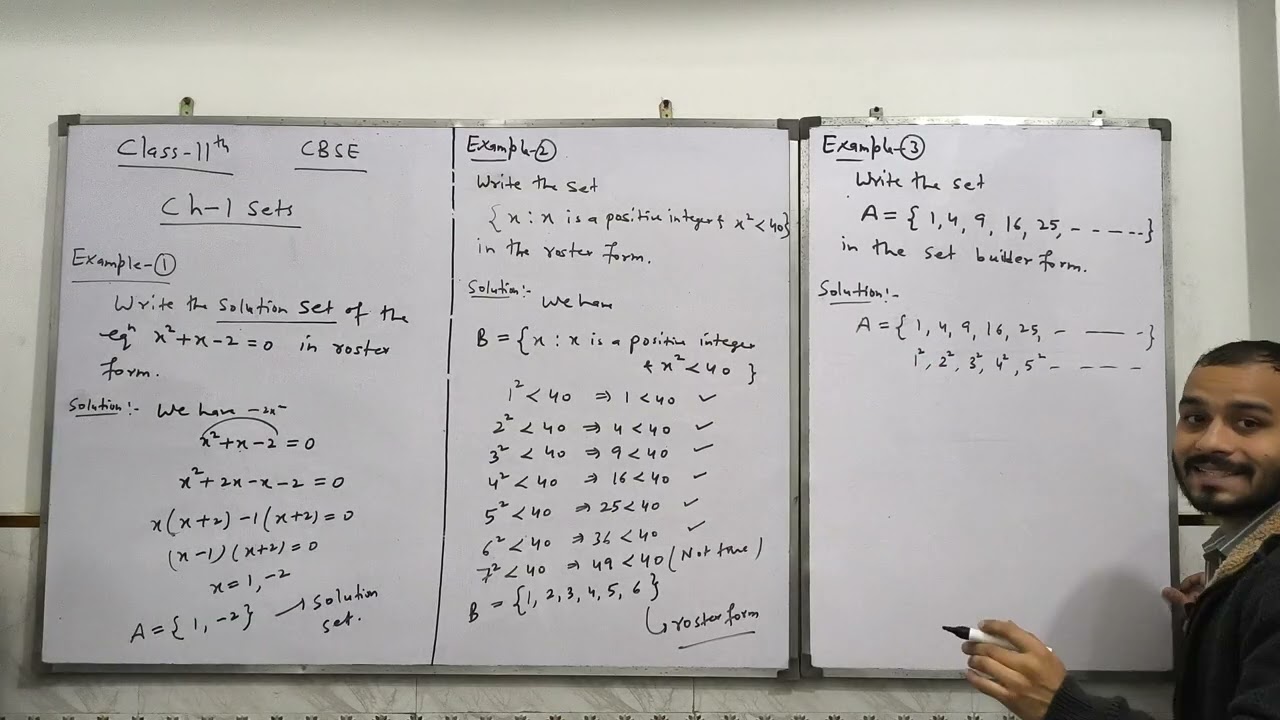 Class-11th CBSE
Ch-1 Sets
Example-①
Write the solution set of the
eqⁿ x²+x-2=0 in roster
form.
Solution:- We have -2x²
x²+x-2=0
x²+2x-x-2=0
x(x+2)-1(x+2)=0
(x-1)(x+2)=0
x=1,-2
A={1,-2} → solution
set.
Example-②
Write the set
{x:x is a positive integer & x²<40}
in the roster form.
Solution:- We have
B={x:x is a positive integer
& x²<40}
1²<40 ⇒ 1<40 ✓
2²<40 ⇒ 4<40 ✓
3²<40 ⇒ 9<40 ✓
4²<40 ⇒ 16<40 ✓
5²<40 ⇒ 25<40 ✓
6²<40 ⇒ 36<40 ✓
7²<40 ⇒ 49<40 (Not true)
B={1,2,3,4,5,6}
↳ roster form
Example-③
Write the set
A={1,4,9,16,25,-----}
in the set builder form.
Solution:-
A={1,4,9,16,25,- — — -}
1²,2²,3²,4²,5²- - — - -